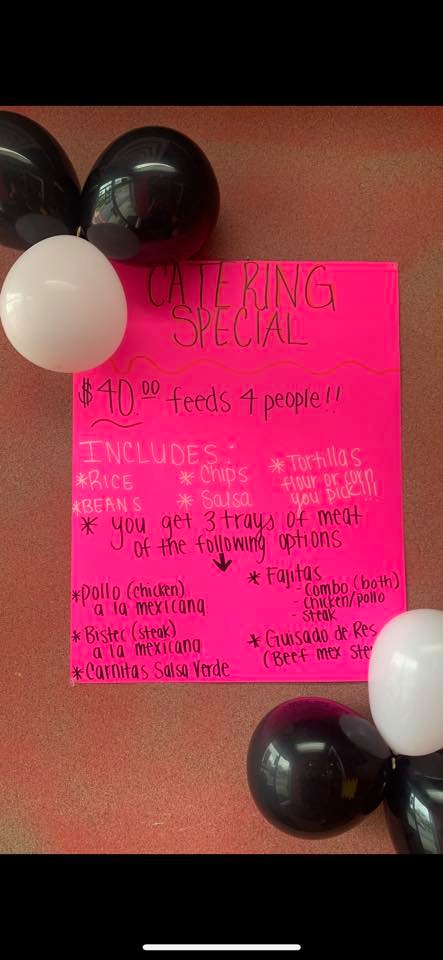 CATERING
SPECIAL
$40.00 feeds 4 people!!
INCLUDES:
*RICE
*BEANS
* Chips
* Salsa
*Tortillas
flour or corn
you pick!!!
* you get 3 trays of meat
of the following options
*Pollo (chicken)
a la mexicana
*Bistec (steak)
a la mexicana
*Carnitas Salsa Verde
* Fajitas
- Combo (both)
- chicken/pollo
- steak
* Guisado de Res
(Beef mex ste